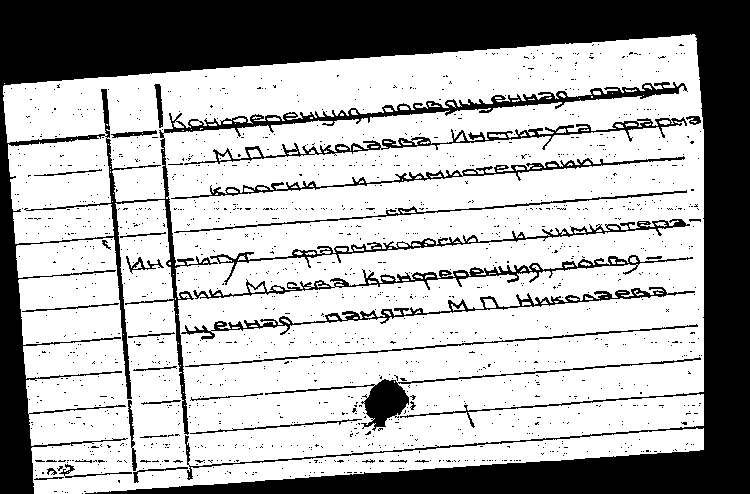 Конференция, посвященная памяти
М.П. Николаева, Института фарма
кологии и химиотерапии.
см.
Институт фармакологии и химиотера-
пии. Москва Конференция, посвя-
щенная памяти М.П. Николаева